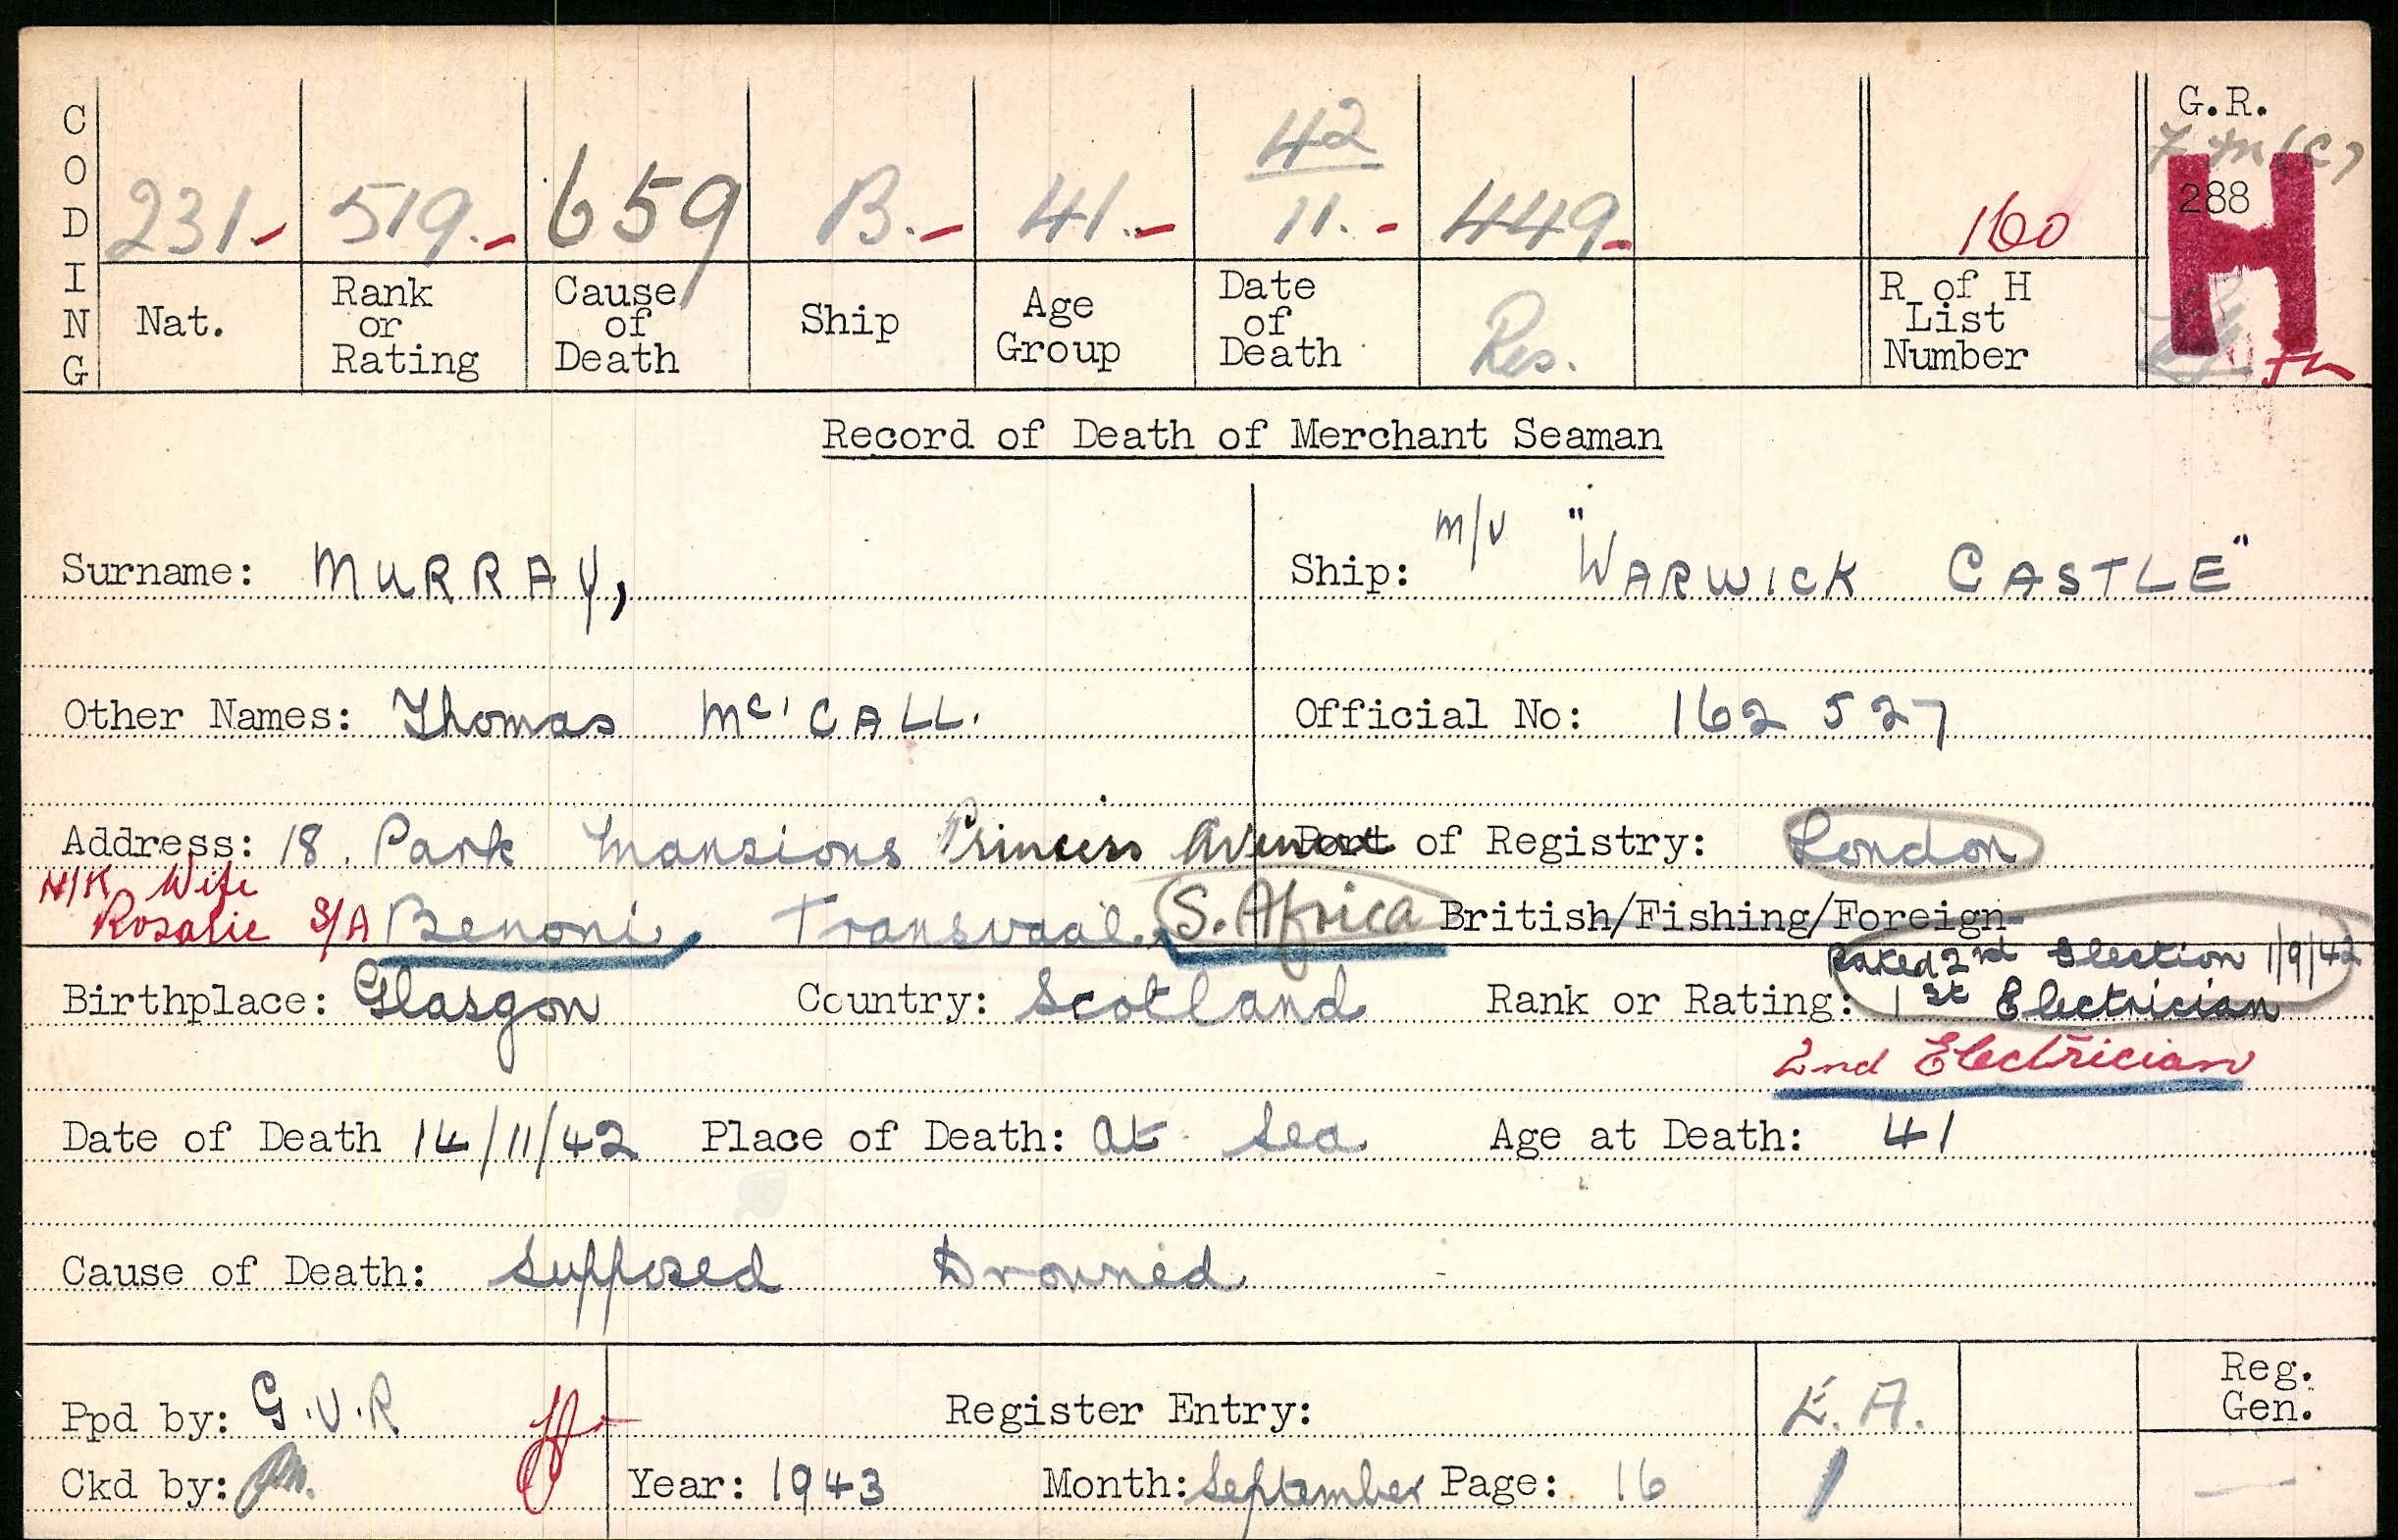 CODING
G.R.
42
231.- 519.- 659 B.- 41.- 11.- 449- 160 288
H
Nat. Rank or Rating Cause of Death Ship Age Group Date of Death Res. R of H List Number
Record of Death of Merchant Seaman
Surname: MURRAY, Ship: M/V "WARWICK CASTLE"
Other Names: Thomas Mc'CALL. Official No: 162 527
Address: 18. Park Mansions Princess Avenue Port of Registry: London
N/K Wife
Rosalie S/A Benoni, Transvaal. S. Africa British/Fishing/Foreign
Raked 2nd Election 1/9/42
Birthplace: Glasgow Country: Scotland Rank or Rating: 1st Electrician
2nd Electrician
Date of Death 14/11/42 Place of Death: At Sea Age at Death: 41
Cause of Death: Supposed Drowned
Ppd by: G.V.R Register Entry: E.A. Reg. Gen.
Ckd by: Year: 1943 Month: September Page: 16 1 —